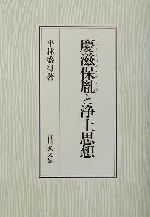 平林盛得著
慶滋保胤と浄土思想
吉川弘文館